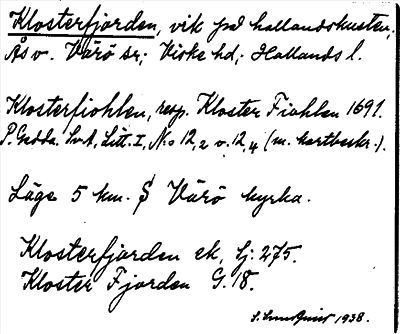 Klosterfjorden, vik på hallandskusten,
Ås v. Värö sn; Viske hd; Hallands l.
Klosterfiohlen, resp. Kloster Fiahlen 1691.
P. Gedda. SvA, Litt. I, No 12,2 o. 12,4 (m. kartbeskr.).
Läge 5 km. S Värö kyrka.
Klosterfjorden ek, lj. 275.
Kloster Fjorden G. 18.
1938.